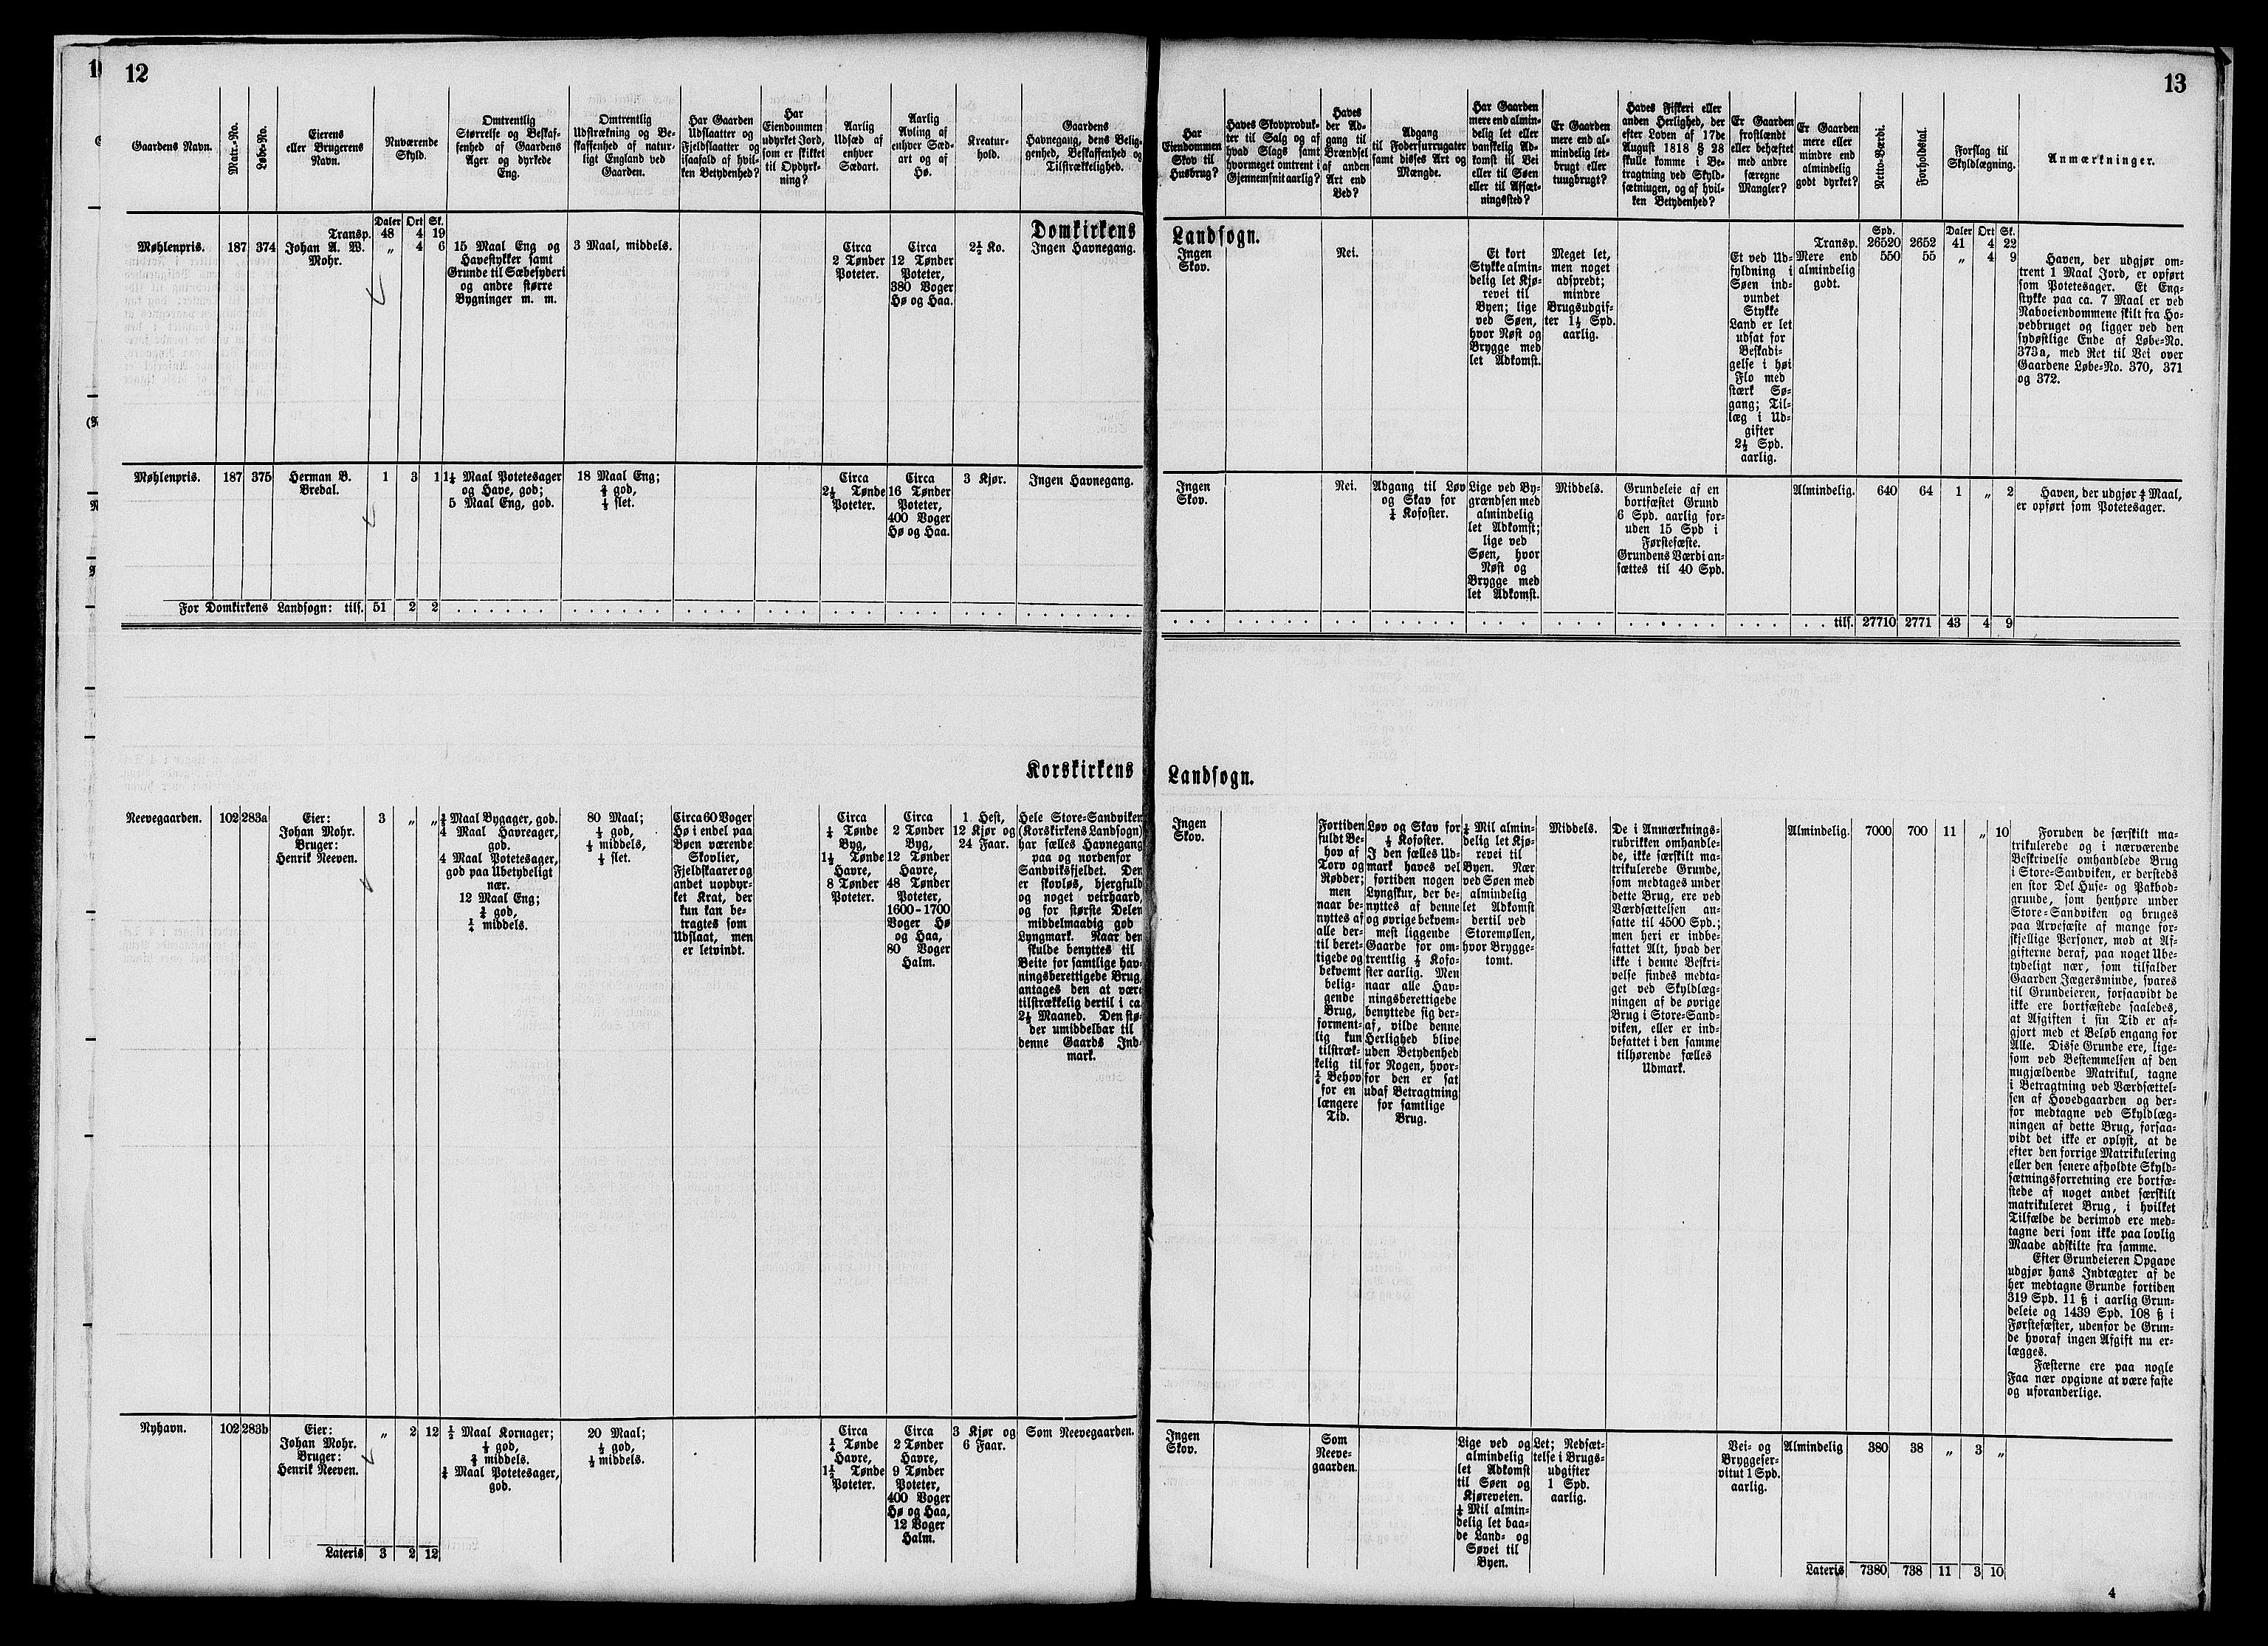 12
Gaardens Navn.
Matr.-No.
Løbe-No.
Eierens
eller Brugerens
Navn.
Nuværende
Skyld.
Omtrentlig
Størrelse og Beskaf-
fenhed af Gaardens
Ager og dyrkede
Eng.
Omtrentlig
Udstrækning og Be-
skaffenhed af natur-
ligt England ved
Gaarden.
Har Gaarden
Udslaatter og
Fjeldslaatter og
isaafald af hvil-
ken Betydenhed?
Har
Eiendommen
udyrket Jord,
som er skikket
til Opdyrk-
ning?
Aarlig
Udsæd af
enhver
Sædart.
Aarlig
Avling af
enhver Sæd-
art og af
Hø.
Kreatur-
hold.
Gaardens
Havnegang, dens Belig-
genhed, Beskaffenhed og
Tilstrækkelighed.
Domkirkens
Daler Ort Sk.
Transp. 48 4 19
Møhlenpris.
187
374
Johan A. W.
Mohr.
„ 4 6
15 Maal Eng og
Havestykker samt
Grunde til Sæbesyderi
og andre større
Bygninger m. m.
3 Maal, middels.
Circa
2 Tønder
Poteter.
Circa
12 Tønder
Poteter,
380 Voger
Hø og Haa.
2½ Ko.
Ingen Havnegang.
Møhlenpris.
187
375
Herman B.
Bredal.
1 3 1
1¼ Maal Potetesager
og Have, god;
5 Maal Eng, god.
18 Maal Eng;
⅔ god,
⅓ slet.
Circa
2½ Tønde
Poteter.
Circa
16 Tønder
Poteter,
400 Voger
Hø og Haa.
3 Kjør.
Ingen Havnegang.
For Domkirkens Landsogn: tils. 51 2 2
Korskirkens
Neevegaarden.
102
283a
Eier:
Johan Mohr.
Bruger:
Henrik Neeven.
3 „ „
Maal Bygager, god.
4 Maal Havreager,
god.
4 Maal Potetesager,
god paa Ubetydeligt
nær.
12 Maal Eng;
¾ god,
¼ middels.
80 Maal;
⅓ god,
⅓ middels,
⅓ slet.
Circa 60 Voger
Hø i endel paa
Bøen værende
Skovlier,
Fjeldskaarer og
andet uopdyr-
ket Krat, der
kun kan be-
tragtes som
Udslaat, men
er letvindt.
Circa
Tønde
Byg,
1½ Tønde
Havre,
8 Tønder
Poteter.
Circa
2 Tønder
Byg,
12 Tønder
Havre,
48 Tønder
Poteter,
1600-1700
Voger Hø
og Haa,
80 Voger
Halm.
1 Hest,
12 Kjør og
24 Faar.
Hele Store-Sandviken
(Korskirkens Landsogn)
har fælles Havnegang
paa og nordenfor
Sandviksfjeldet. Den
er skovløs, bjergfuld
og noget veirhaard,
og for største Delen
middelmaadig god
Lyngmark. Naar den
skulde benyttes til
Beite for samtlige hav-
ningsberettigede Brug,
antages den at være
tilstrækkelig dertil i ca.
2½ Maaned. Den stø-
der umiddelbar til
denne Gaards Ind-
mark.
Nyhavn.
102
283b
Eier:
Johan Mohr.
Bruger:
Henrik Neeven.
„ 2 12
½ Maal Kornager;
⅓ god,
⅔ middels.
¾ Maal Potetesager,
god.
20 Maal;
½ god,
½ middels.
Circa
¼ Tønde
Havre,
1½ Tønde
Poteter.
Circa
2 Tønder
Havre,
9 Tønder
Poteter,
400 Voger
Hø og Haa,
12 Voger
Halm.
3 Kjør og
6 Faar.
Som Neevegaarden.
Lateris 3 2 12
13
Har
Eiendommen
Skov til
Husbrug?
Haves Skovproduk-
ter til Salg og af
hvad Slags samt
hvormeget omtrent i
Gjennemsnit aarlig?
Haves
der Ad-
gang til
Brændsel
af anden
Art end
Ved?
Adgang
til Fodersurrogater
samt disses Art og
Mængde.
Har Gaarden
mere end almin-
delig let eller
vanskelig Ad-
komst til Vei
eller til Søen
eller til Afsæt-
ningssted?
Er Gaarden
mere end al-
mindelig let-
brugt eller
tungbrugt?
Haves Fiskeri eller
anden Herlighed, der
efter Loven af 17de
August 1818 § 28
skulle komme i Be-
tragtning ved Skyld-
sætningen, og af hvil-
ken Betydenhed?
Er Gaarden
frostlændt
eller behæftet
med andre
særegne
Mangler?
Er Gaarden
mere eller
mindre end
almindelig
godt dyrket?
Netto-Værdi.
Forholdstal.
Forslag til
Skyldlægning.
Anmærkninger.
Landsogn.
Spd. Daler Ort Sk.
Transp. 26520 2652 41 4 22
Ingen
Skov.
Nei.
Et kort
Stykke almin-
delig let Kjø-
revei til
Byen; lige
ved Søen,
hvor Nøst og
Brygge med
let Adkomst.
Meget let,
men noget
adspredt;
mindre
Brugsudgif-
ter 1½ Spd.
aarlig.
Et ved Ud-
fyldning i
Søen ind-
vundet
Stykke
Land er let
udsat for
Beskadi-
gelse i høi
Flo med
stærk Sø-
gang; Til-
læg i Ud-
gifter
2½ Spd.
aarlig.
Mere end
almindelig
godt.
550 55 „ 4 9
Haven, der udgjør om-
trent 1 Maal Jord, er opført
som Potetesager. Et Eng-
stykke paa ca. 7 Maal er ved
Naboeiendommene skilt fra Ho-
vedbruget og ligger ved den
sydøstlige Ende af Løbe-No.
373a, med Ret til Vei over
Gaardene Løbe-No. 370, 371
og 372.
Ingen
Skov.
Nei.
Adgang til Løv
og Skav for
¼ Kofoster.
Lige ved By-
grændsen med
almindelig
let Adkomst;
lige ved
Søen, hvor
Nøst og
Brygge med
let Adkomst.
Middels.
Grundeleie af en
bortfæstet Grund
6 Spd. aarlig for-
uden 15 Spd i
Førstefæste.
Grundens Værdi an-
sættes til 40 Spd.
Almindelig.
640 64 1 „ 2
Haven, der udgjør ¾ Maal,
er opført som Potetesager.
tils. 27710 2771 43 4 9
Landsogn.
Ingen
Skov.
Fortiden
fuldt Be-
hov af
Torv og
Rødder;
men
naar be-
nyttes af
alle der-
til beret-
tigede og
bekvemt
belig-
gende
Brug,
forment-
lig kun
tilstræk-
kelig til
Behov
for en
længere
Tid.
Løv og Skav for
½ Kofoster.
I den fælles Ud-
mark haves vel
fortiden nogen
Lyngskur, der be-
nyttes af denne
og øvrige bekvem-
mest liggende
Gaarde for om-
trentlig ½ Kofo-
ster aarlig. Men
naar alle Hav-
ningsberettigede
benyttede sig der-
af, vilde denne
Herlighed blive
uden Betydenhed
for Nogen, hvor-
for den er sat
udaf Betragtning
for samtlige
Brug.
¼ Mil almin-
delig let Kjø-
revei til
Byen. Nær
ved Søen med
almindelig
let Adkomst
dertil ved
Storemøllen,
hvor Brygge-
tomt.
Middels.
De i Anmærknings-
rubrikken omhandle-
de, ikke særskilt ma-
trikulerede Grunde,
som medtages under
dette Brug, ere ved
Værdsættelsen an-
satte til 4500 Spd.;
men heri er indbe-
fattet Alt, hvad der
ikke i denne Beskri-
velse findes medta-
get ved Skyldlæg-
ningen af de øvrige
Brug i Store-Sand-
viken, eller er ind-
befattet i den samme
tilhørende fælles
Udmark.
Almindelig.
7000 700 11 „ 10
Foruden de særskilt ma-
trikulerede og i nærværende
Beskrivelse omhandlede Brug
i Store-Sandviken, er dersteds
en stor Del Huse- og Pakbod-
grunde, som henhøre under
Store-Sandviken og bruges
paa Arvefæste af mange for-
skjellige Personer, mod at Af-
gifterne deraf, paa noget Ube-
tydeligt nær, som tilfalder
Gaarden Jægersminde, svares
til Grundeieren, forsaavidt de
ikke ere bortfæstede saaledes,
at Afgiften i sin Tid er af-
gjort med et Beløb engang for
Alle. Disse Grunde ere, lige-
som ved Bestemmelsen af den
nugjældende Matrikul, tagne
i Betragtning ved Værdsættel-
sen af Hovedgaarden og der-
for medtagne ved Skyldlæg-
ningen af dette Brug, forsaa-
vidt det ikke er oplyst, at de
efter den forrige Matrikulering
eller den senere afholdte Skyld-
sætningsforretning ere bortfæ-
stede af noget andet særskilt
matrikuleret Brug, i hvilket
Tilfælde de derimod ere med-
tagne deri som ikke paa lovlig
Maade adskilte fra samme.
Efter Grundeieren Opgave
udgjør hans Indtægter af de
her medtagne Grunde fortiden
319 Spd. 11 ß i aarlig Grun-
deleie og 1439 Spd. 108 ß i
Førstefæster, udenfor de Grun-
de hvoraf ingen Afgift nu er-
lægges.
Fæsterne ere paa nogle
Faa nær opgivne at være faste
og uforanderlige.
Ingen
Skov.
Som
Neeve-
gaarden.
Lige ved og
almindelig
let Adkomst
til Søen og
Kjøreveien.
¼ Mil almin-
delig let baa-
de Land- og
Søvei til
Byen.
Let; Nedsæt-
telse i Brugs-
udgifter
1 Spd.
aarlig.
Vei- og
Bryggeser-
vitut 1 Spd.
aarlig.
Almindelig
380 38 „ 3 „
Lateris 7380 738 11 3 10
4